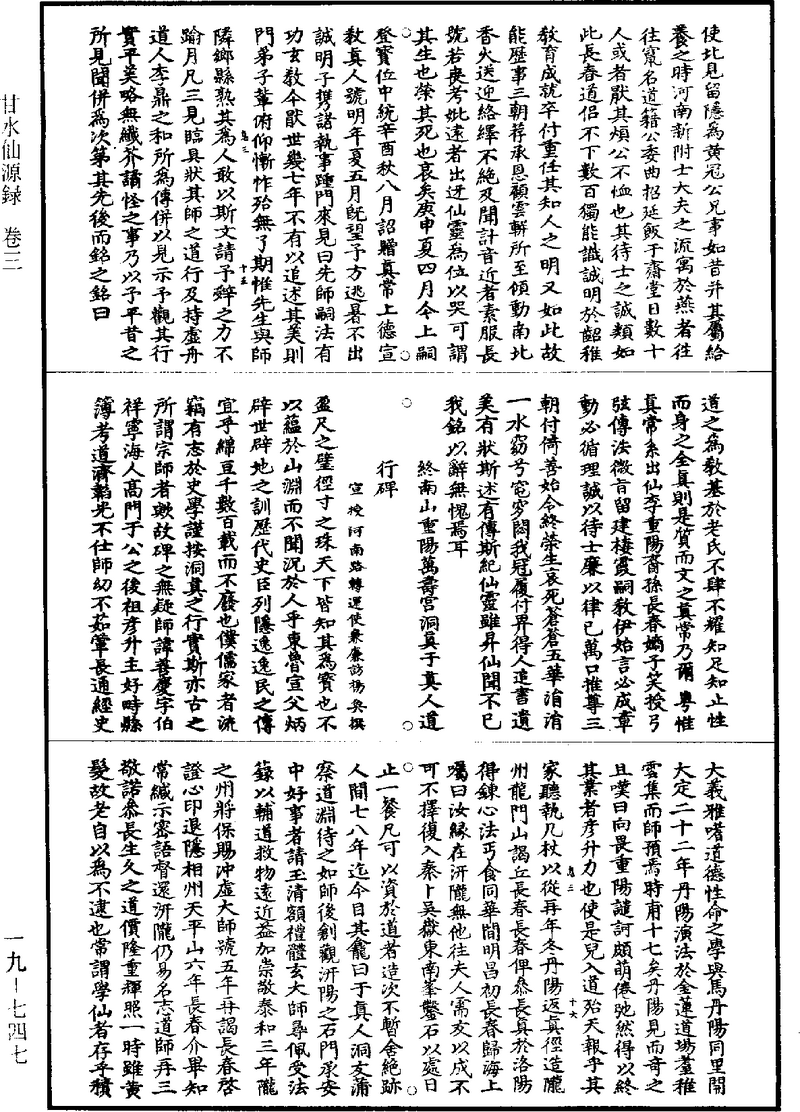 使北見留隱爲黃冠公兄事如昔幷其屬給
養之時河南新附士大夫之流寓於燕者往
往竄名道籍公委曲招延飯于齋堂日數十
人或者厭其煩公不恤也其待士之誠類如
此長春道侣不下數百獨能識誠明於齠稚
敎育成就卒付重任其知人之明又如此故
能歷事三朝荐承恩顧雲軿所至傾動南北
香火送迎絡繹不絶及聞訃音近者素服長
號若喪考妣遠者出迓仙靈爲位以哭可謂
其生也榮其死也哀矣庚申夏四月今上嗣
登寶位中統辛酉秋八月詔贈眞常上德宣
敎眞人號明年夏五月旣望予方逃暑不出
誠明子携諸執事踵門來見曰先師嗣法有
功玄敎今厭世幾七年不有以追述其美則
門弟子輩俯仰慚怍殆無了期惟先生與師
隣鄉縣熟其爲人敢以斯文請予辭之力不
踰月凡三見臨具狀其師之道行及持虛舟
道人李鼎之和所爲傳併以見示予觀其行
實平美略無纎芥譎怪之事乃以予平昔之
所見聞併爲次第其先後而銘之銘曰
道之爲敎基於老氏不肆不耀知足知止性
而身之全眞則是質而文之眞常乃爾粤惟
眞常系出仙李重陽裔孫長春嫡子笑授弓
弦傳法微旨留建棲霞嗣敎伊始言必成章
動必循理誠以待士廉以律已萬口推尊三
朝付倚善始令終榮生哀死蒼蒼五華湝湝
一水窈兮窀穸閟我冠履付畀得人追書遺
美有狀斯述有傳斯紀仙靈雖昇仙聞不已
我銘以辭無愧焉耳
終南山重陽萬壽宮洞眞于眞人道
行碑
宣授河南路轉運使兼廉訪楊奐撰
盈尺之璧徑寸之珠天下皆知其爲寶也不
以蘊於山淵而不聞況於人乎東魯宣父炳
辟世辟地之訓歷代史臣列隱逸逸民之傳
宜乎綿亘千數百載而不廢也僕儒家者流
竊有志於史學謹按洞眞之行實斯亦古之
所謂宗師者歟故碑之無疑師諱善慶字伯
祥寧海人髙門于公之後祖彥升主好畤縣
簿考道濟韜光不仕師幼不茹葷長通經史
大義雅嗜道德性命之學與馬丹陽同里開
大定二十二年丹陽演法於金蓮道塲耋稚
雲集而師預焉時甫十七矣丹陽見而奇之
且嘆曰向畏重陽譴訶頗萌倦弛然得以終
其業者彥升力也使是兒入道殆天報乎其
家聽執几杖以從再年冬丹陽返眞徑造隴
州龍門山謁丘長春長春俾叅長眞於洛陽
得鍊心法丐食同華間明昌初長春歸海上
囑曰汝緣在汧隴無他往夫人需友以成不
可不擇復入秦卜吳嶽東南峯鑿石以處日
止一餐凡可以資於道者造次不暫舍絶跡
人間七八年迄今目其龕曰于眞人洞友蒲
察道淵待之如師後創觀汧陽之石門承安
中好事者請玉清額禮體玄大師尋佩受法
籙以輔道救物遠近益加崇敬泰和三年隴
之州將保賜冲虛大師號五年再謁長春啓
證心印退隱相州天平山六年長春介畢知
常緘示密語督還汧隴仍易名志道師再三
敬諾叅長生久之道價隆重輝照一時雖黃
髮故老自以爲不逮也常謂學仙者存乎積
甘水仙源録　卷三
一九-七四七
甚三
十五
甚三
十六